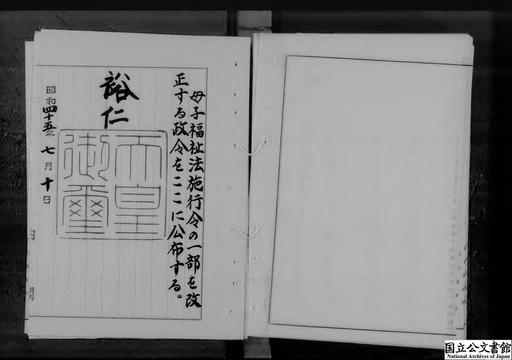 母子福祉法施行令の一部を改
正する政令をここに公布する。
裕仁
天皇
御璽
昭和四十五年七月十日
国立公文書館
National Archives of Japan